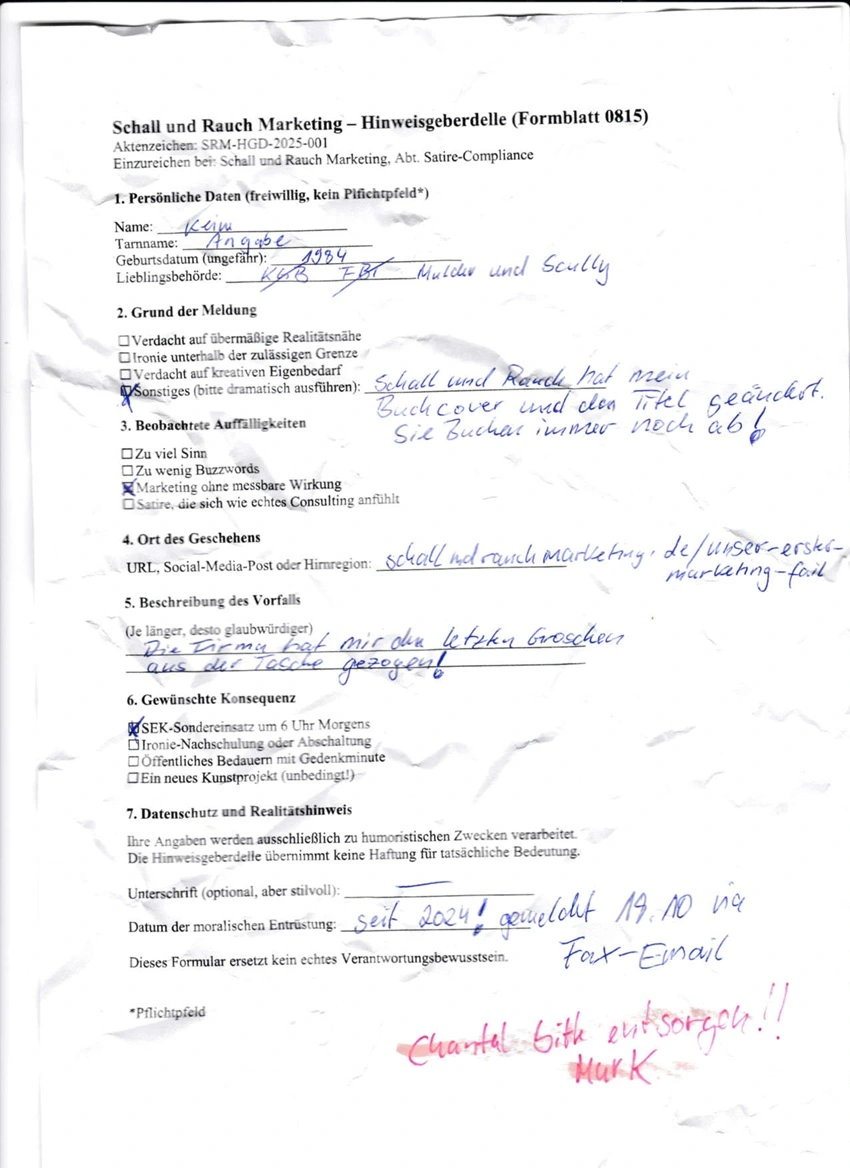 Schall und Rauch Marketing – Hinweisgeberdelle (Formblatt 0815)
Aktenzeichen: SRM-HGD-2025-001
Einzureichen bei: Schall und Rauch Marketing, Abt. Satire-Compliance
1. Persönliche Daten (freiwillig, kein Plfichtpfeld*)
Name: Keine
Tarnname: Angabe
Geburtsdatum (ungefähr): 1984
Lieblingsbehörde: KGB FBI Mulder und Scully
2. Grund der Meldung
☐ Verdacht auf übermäßige Realitätsnähe
☐ Ironie unterhalb der zulässigen Grenze
☐ Verdacht auf kreativen Eigenbedarf
☒ Sonstiges (bitte dramatisch ausführen): Schall und Rauch hat mein
Buchcover und den Titel geändert.
Sie Buchen immer noch ab!
3. Beobachtete Auffälligkeiten
☐ Zu viel Sinn
☐ Zu wenig Buzzwords
☒ Marketing ohne messbare Wirkung
☐ Satire, die sich wie echtes Consulting anfühlt
4. Ort des Geschehens
URL, Social-Media-Post oder Hirnregion: schallundrauchmarketing.de/unser-erster-
marketing-fail
5. Beschreibung des Vorfalls
(Je länger, desto glaubwürdiger)
Die Firma hat mir den letzten Groschen
aus der Tasche gezogen!
6. Gewünschte Konsequenz
☒ SEK-Sondereinsatz um 6 Uhr Morgens
☐ Ironie-Nachschulung oder Abschaltung
☐ Öffentliches Bedauern mit Gedenkminute
☐ Ein neues Kunstprojekt (unbedingt!)
7. Datenschutz und Realitätshinweis
Ihre Angaben werden ausschließlich zu humoristischen Zwecken verarbeitet.
Die Hinweisgeberdelle übernimmt keine Haftung für tatsächliche Bedeutung.
Unterschrift (optional, aber stilvoll): —
Datum der moralischen Entrüstung: seit 2024! gemeldet 19.10 via
Fax-Email
Dieses Formular ersetzt kein echtes Verantwortungsbewusstsein.
*Pflichtpfeld
Chantal bitte entsorgen!!
Mark